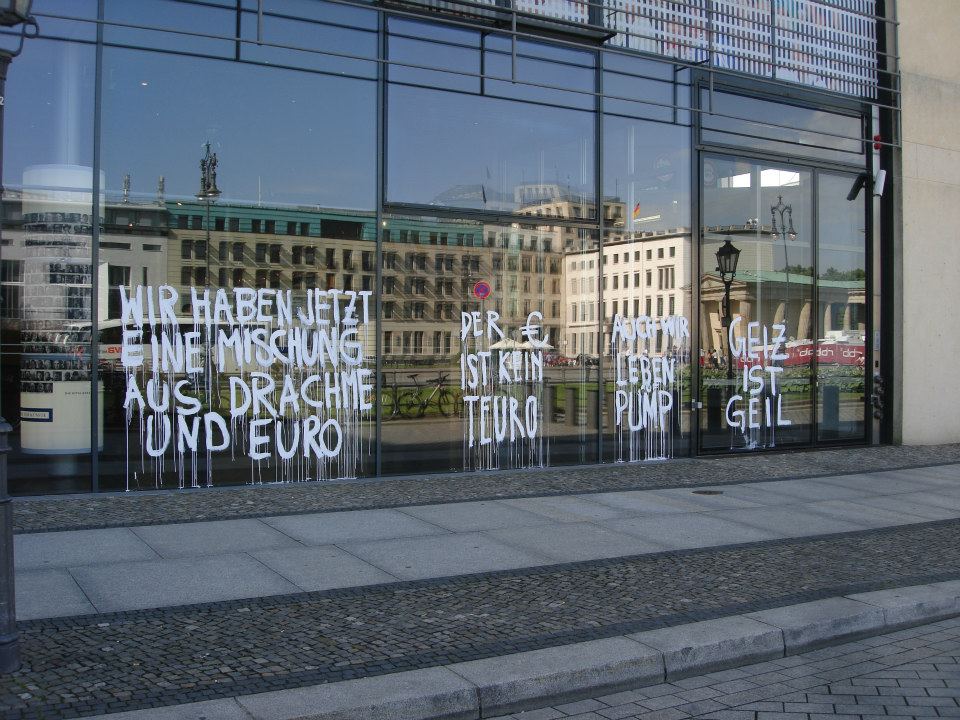 WIR HABEN JETZT
EINE MISCHUNG
AUS DRACHME
UND EURO
DER €
IST KEIN
TEURO
AUCH WIR
LEBEN
PUMP
GEIZ
IST
GEIL